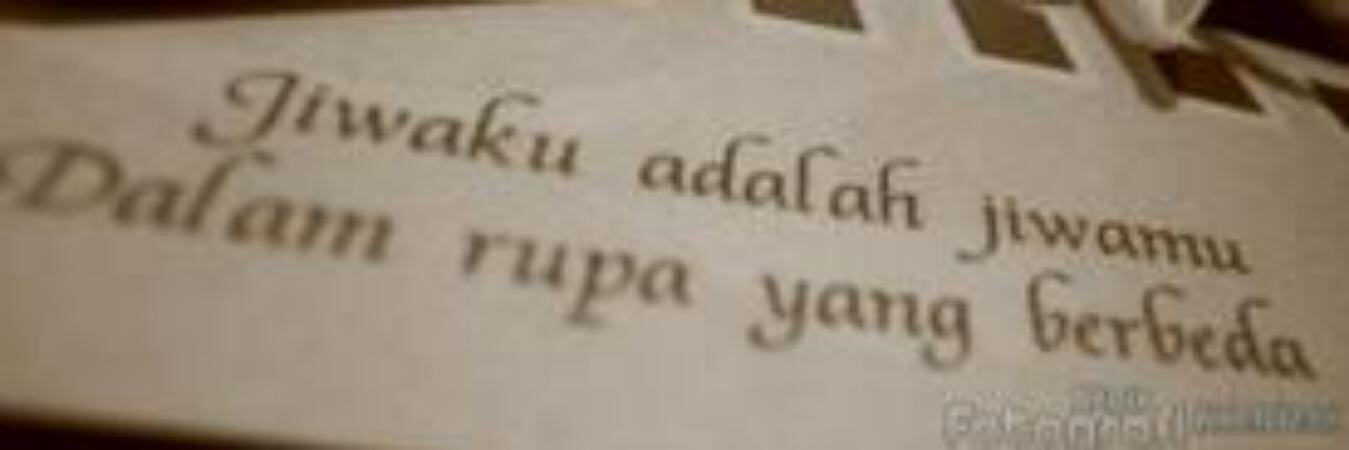 Jiwaku adalah jiwamu
Dalam rupa yang berbeda